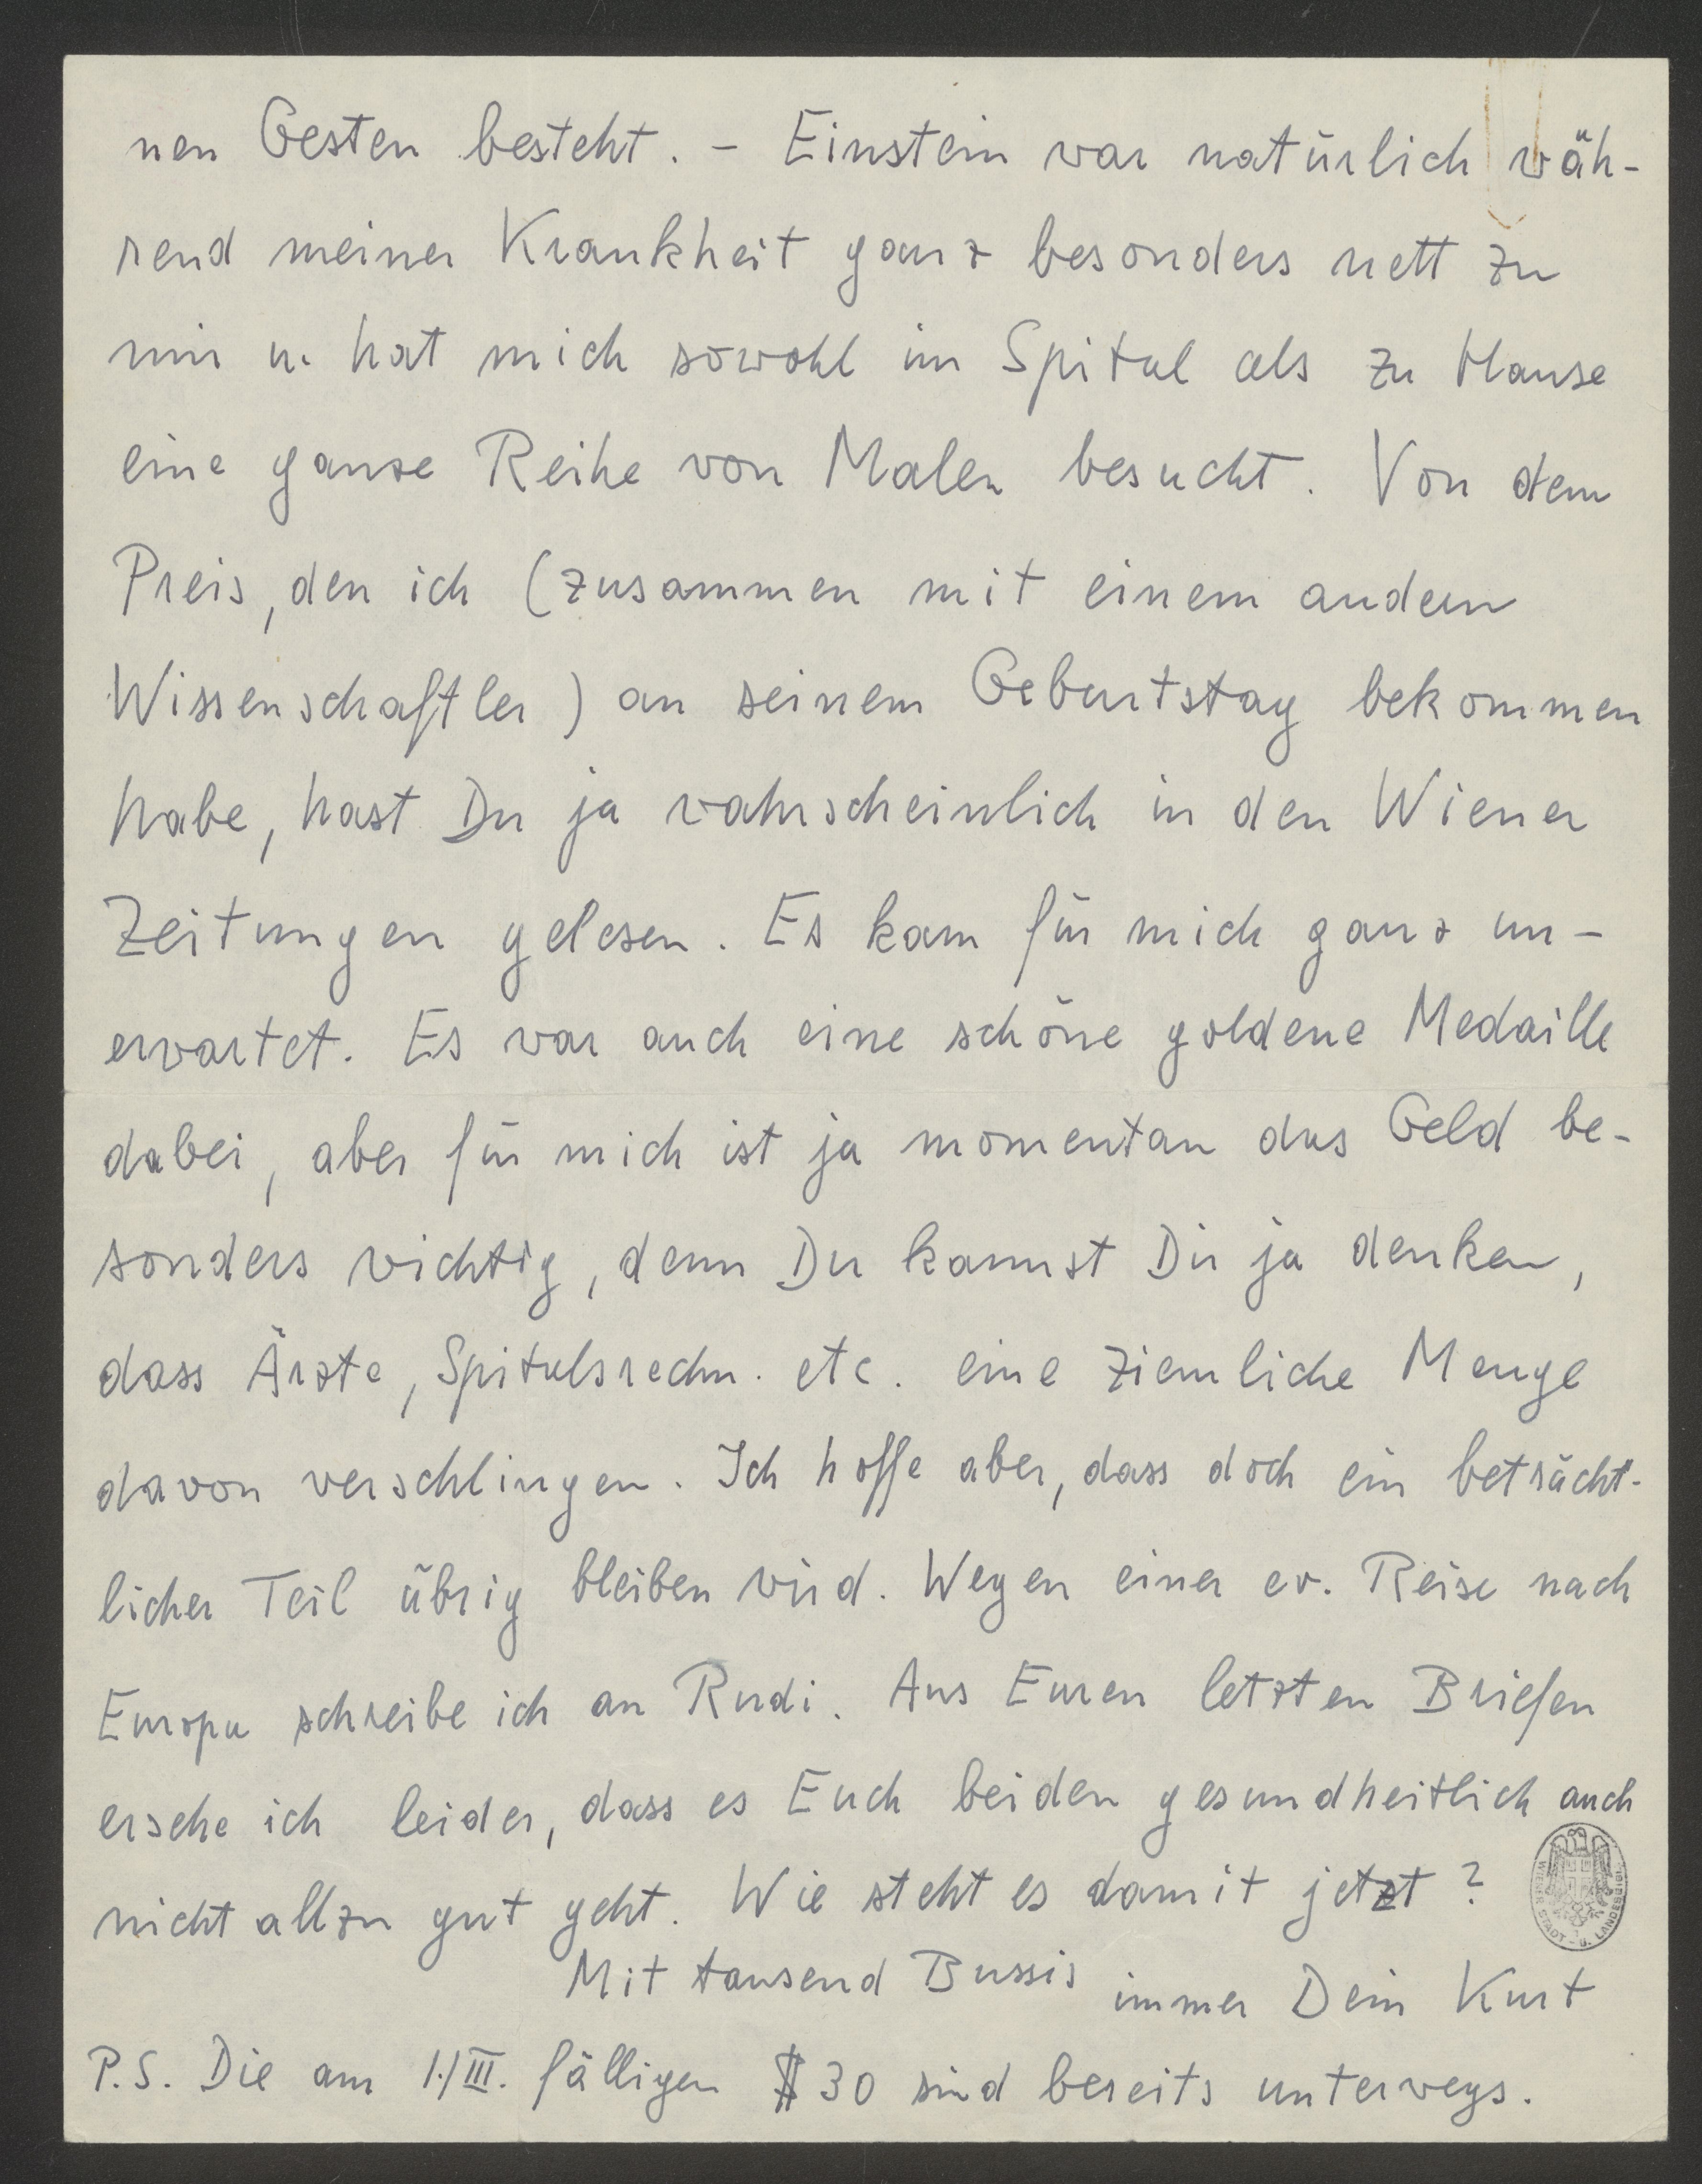 nen Gesten besteht. - Einstein war natürlich wäh-
rend meiner Krankheit ganz besonders nett zu
mir u. hat mich sowohl im Spital als zu Hause
eine ganze Reihe von Malen besucht. Von dem
Preis, den ich (zusammen mit einem andern
Wissenschaftler) an seinem Geburtstag bekommen
habe, hast Du ja wahrscheinlich in den Wiener
Zeitungen gelesen. Es kam für mich ganz un-
erwartet. Es war auch eine schöne goldene Medaille
dabei, aber für mich ist ja momentan das Geld be-
sonders wichtig, denn Du kannst Dir ja denken,
dass Ärzte, Spitalsrechn. etc. eine ziemliche Menge
davon verschlingen. Ich hoffe aber, dass doch ein beträcht-
licher Teil übrig bleiben wird. Wegen einer ev. Reise nach
Europa schreibe ich an Rudi. Aus Euren letzten Briefen
ersehe ich leider, dass es Euch beiden gesundheitlich auch
nicht allzu gut geht. Wie steht es damit jetzt?
Mit tausend Bussis immer Dein Kurt
P.S. Die am 1./III. fälligen $30 sind bereits unterwegs.
STADT - U. LANDESBIBL.